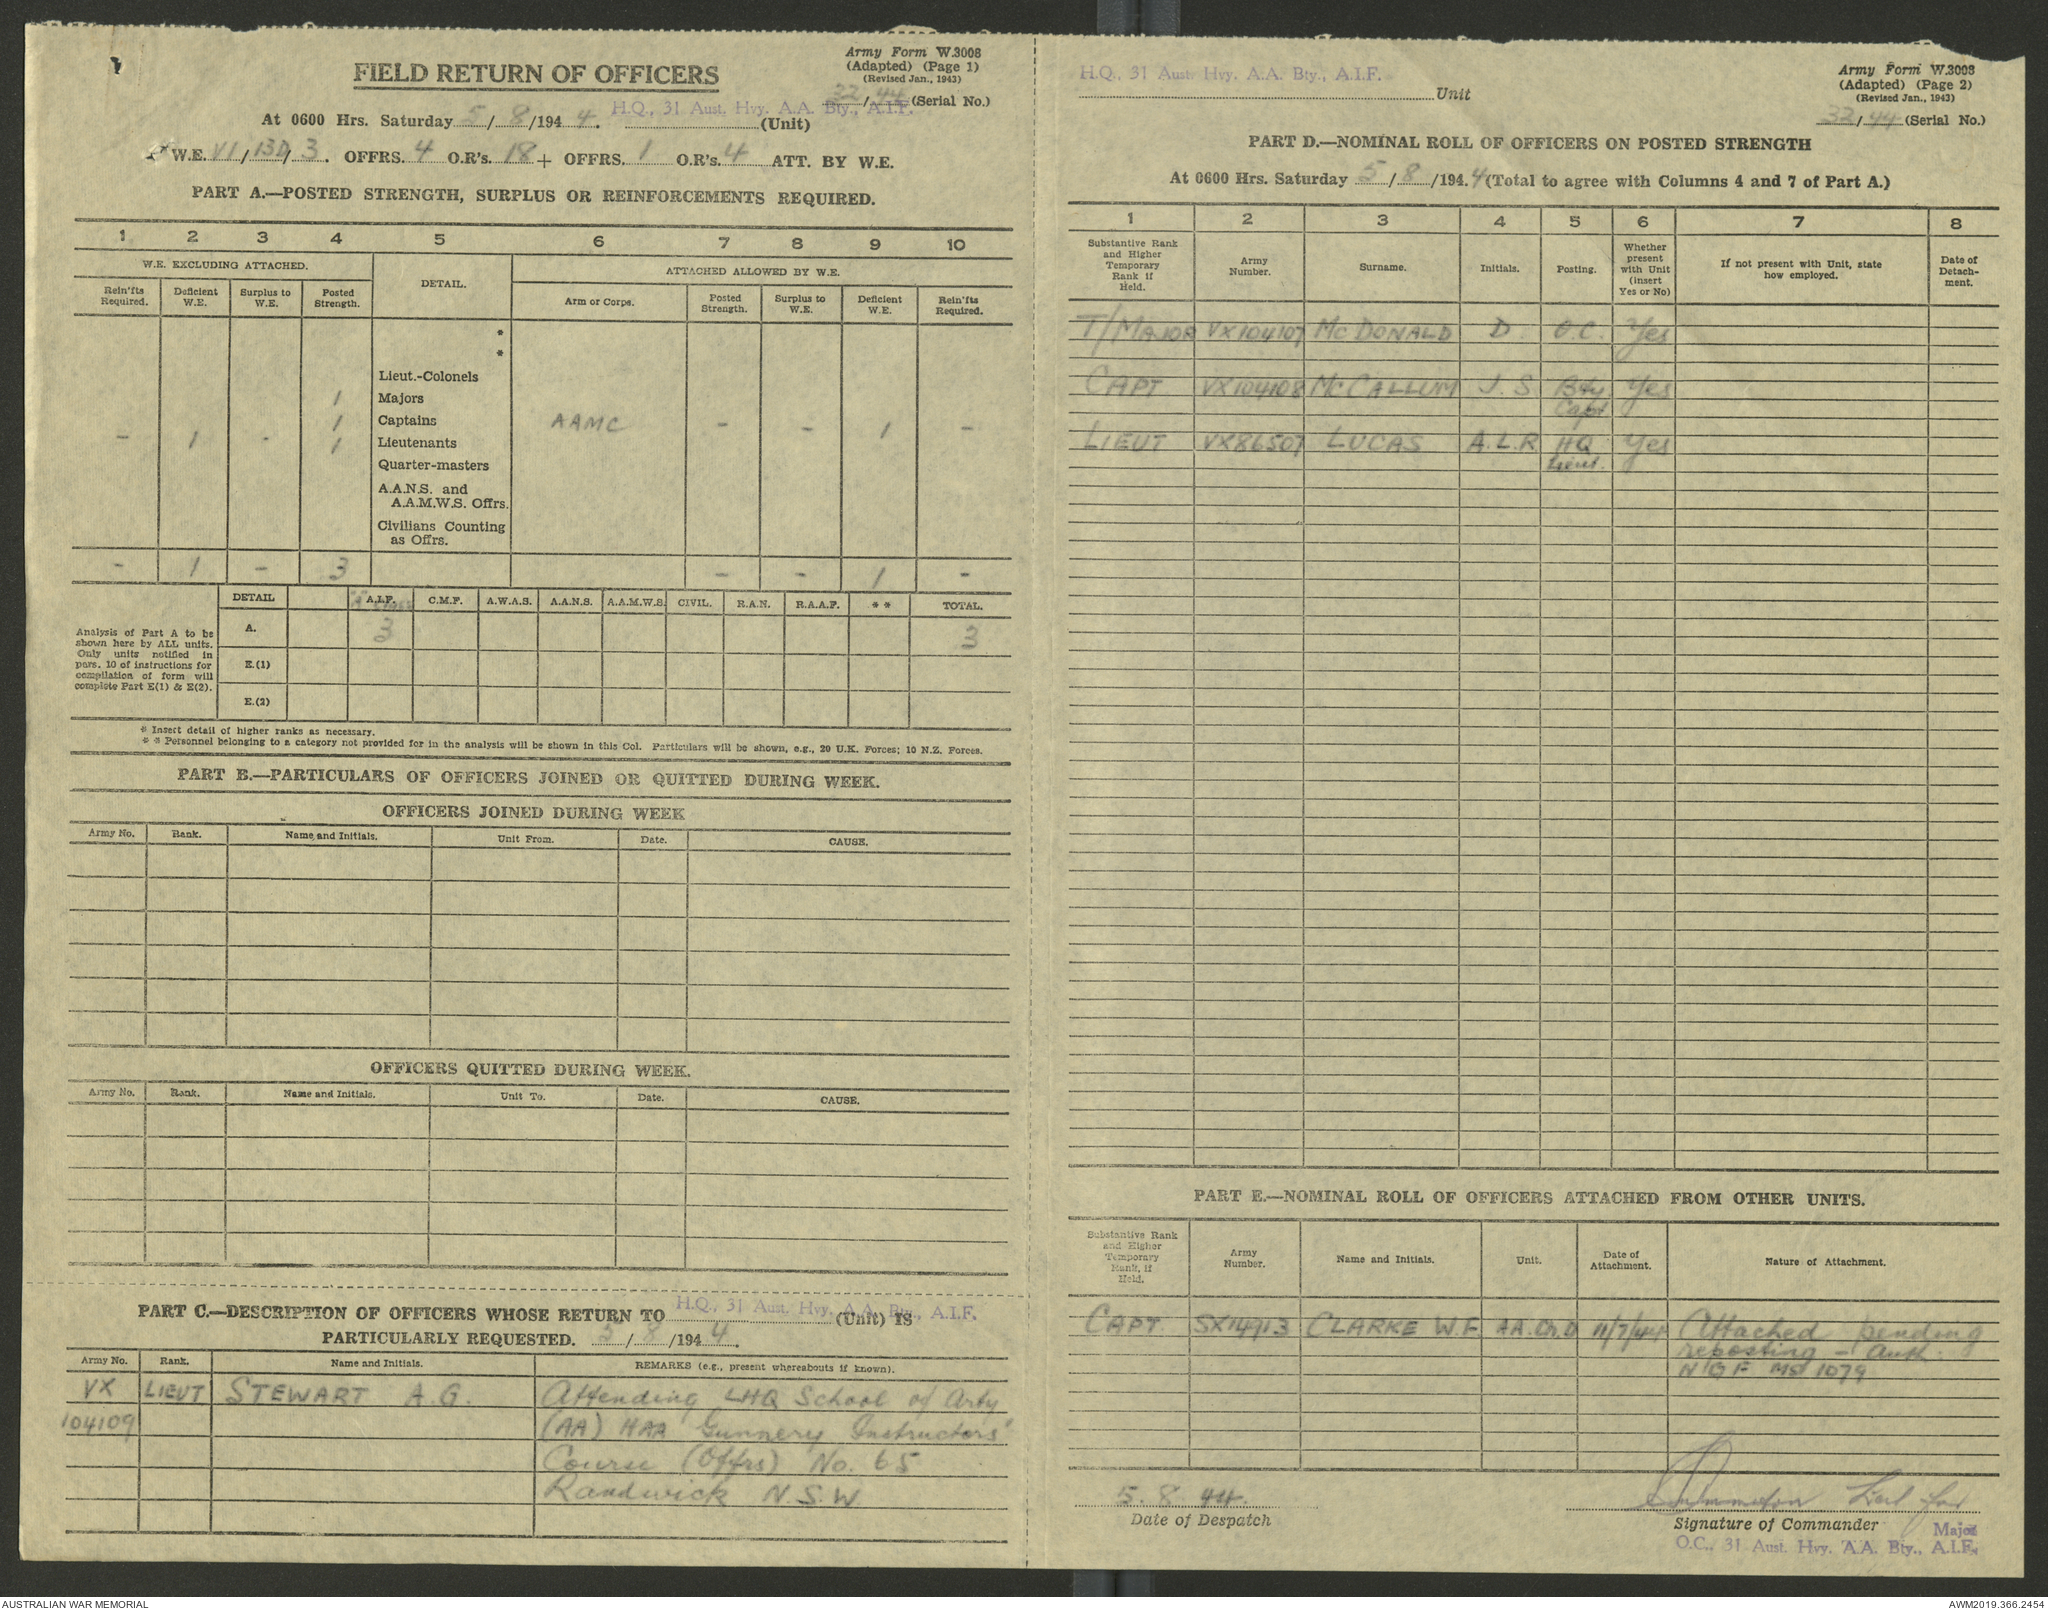 FIELD RETURN OF OFFICERS
Army Form W.3008
(Adapted) (Page 1)
(Revised Jan., 1943)
32/44 (Serial No.)
At 0600 Hrs. Saturday 5/8/1944. H.Q., 31 Aust. Hvy. A.A. Bty., A.I.F. (Unit)
W.E. VI/13D/3. OFFRS. 4 O.R's. 18 + OFFRS. 1 O.R's. 4 ATT. BY W.E.
PART A.—POSTED STRENGTH, SURPLUS OR REINFORCEMENTS REQUIRED.
1 2 3 4 5 6 7 8 9 10
W.E. EXCLUDING ATTACHED. DETAIL. ATTACHED ALLOWED BY W.E.
Rein'fts Required. Deficient W.E. Surplus to W.E. Posted Strength. Arm or Corps. Posted Strength. Surplus to W.E. Deficient W.E. Rein'fts Required.
*
*
Lieut.-Colonels
1 Majors
1 Captains AAMC - - 1 -
- 1 - 1 Lieutenants
Quarter-masters
A.A.N.S. and
A.A.M.W.S. Offrs.
Civilians Counting
as Offrs.
- 1 - 3 - - 1 -
DETAIL A.I.F. C.M.F. A.W.A.S. A.A.N.S. A.A.M.W.S. CIVIL. R.A.N. R.A.A.F. * * TOTAL.
Analysis of Part A to be
shown here by ALL units.
Only units notified in
para. 10 of instructions for
compilation of form will
complete Part E(1) & E(2).
A. 3 3
E.(1)
E.(2)
* Insert detail of higher ranks as necessary.
* * Personnel belonging to a category not provided for in the analysis will be shown in this Col. Particulars will be shown, e.g., 20 U.K. Forces; 10 N.Z. Forces.
PART B.—PARTICULARS OF OFFICERS JOINED OR QUITTED DURING WEEK.
OFFICERS JOINED DURING WEEK
Army No. Rank. Name and Initials. Unit From. Date. CAUSE.
OFFICERS QUITTED DURING WEEK.
Army No. Rank. Name and Initials. Unit To. Date. CAUSE.
PART C.—DESCRIPTION OF OFFICERS WHOSE RETURN TO H.Q., 31 Aust. Hvy. A.A. Bty., A.I.F. (Unit) IS
PARTICULARLY REQUESTED. 5/8/1944.
Army No. Rank. Name and Initials. REMARKS (e.g., present whereabouts if known).
VX LIEUT STEWART A.G. Attending LHQ School of Arty
104109 (AA) HAA Gunnery Instructors'
Course (Offrs) No. 65
Randwick N.S.W
H.Q., 31 Aust. Hvy. A.A. Bty., A.I.F. Unit
Army Form W.3008
(Adapted) (Page 2)
(Revised Jan., 1943)
32/44 (Serial No.)
PART D.—NOMINAL ROLL OF OFFICERS ON POSTED STRENGTH
At 0600 Hrs. Saturday 5/8/1944 (Total to agree with Columns 4 and 7 of Part A.)
1 2 3 4 5 6 7 8
Substantive Rank and Higher Temporary Rank if Held. Army Number. Surname. Initials. Posting. Whether present with Unit (insert Yes or No) If not present with Unit, state how employed. Date of Detachment.
T/MAJOR VX104107 McDONALD D. O.C. Yes
CAPT VX104108 McCALLUM J.S. Bty Yes
Capt
LIEUT VX86507 LUCAS A.L.R HQ Yes
Lieut.
PART E.—NOMINAL ROLL OF OFFICERS ATTACHED FROM OTHER UNITS.
Substantive Rank and Higher Temporary Rank, if Held. Army Number. Name and Initials. Unit. Date of Attachment. Nature of Attachment.
CAPT. SX14913 CLARKE W.F. 11/7/44 Attached pending
reposting - auth.
NGF MS 1079
5.8.44.
Date of Despatch
Lieut for
Signature of Commander Major
O.C., 31 Aust. Hvy. A.A. Bty., A.I.F.
AUSTRALIAN WAR MEMORIAL
AWM2019.366.2454